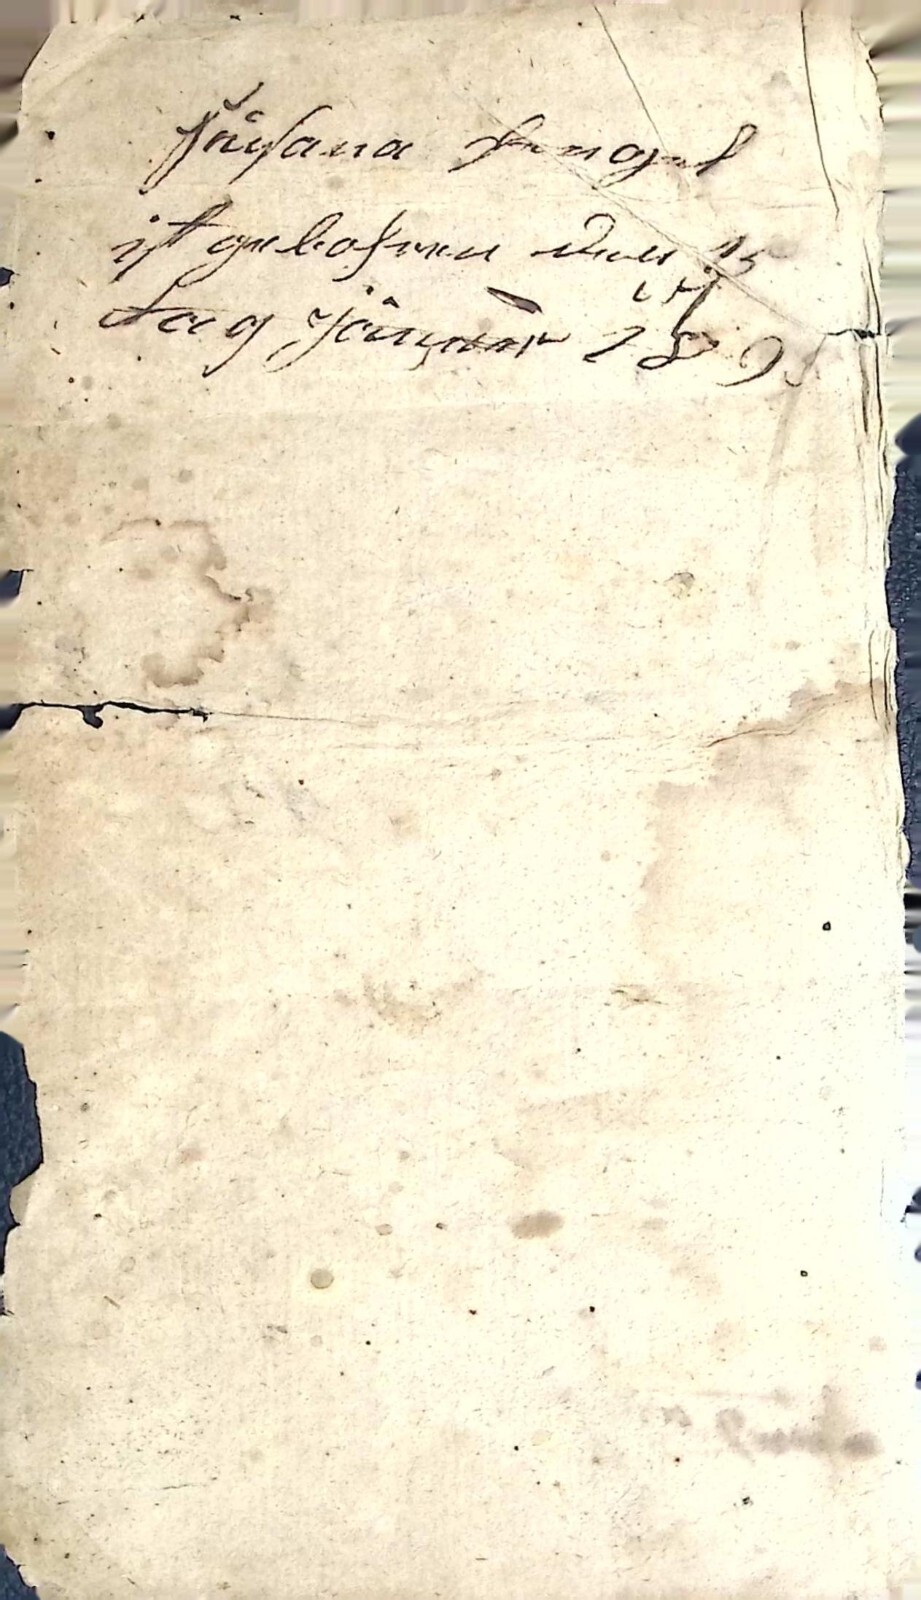 Süsana Hengel
ist gebohren den 15
tag Jänner 1895